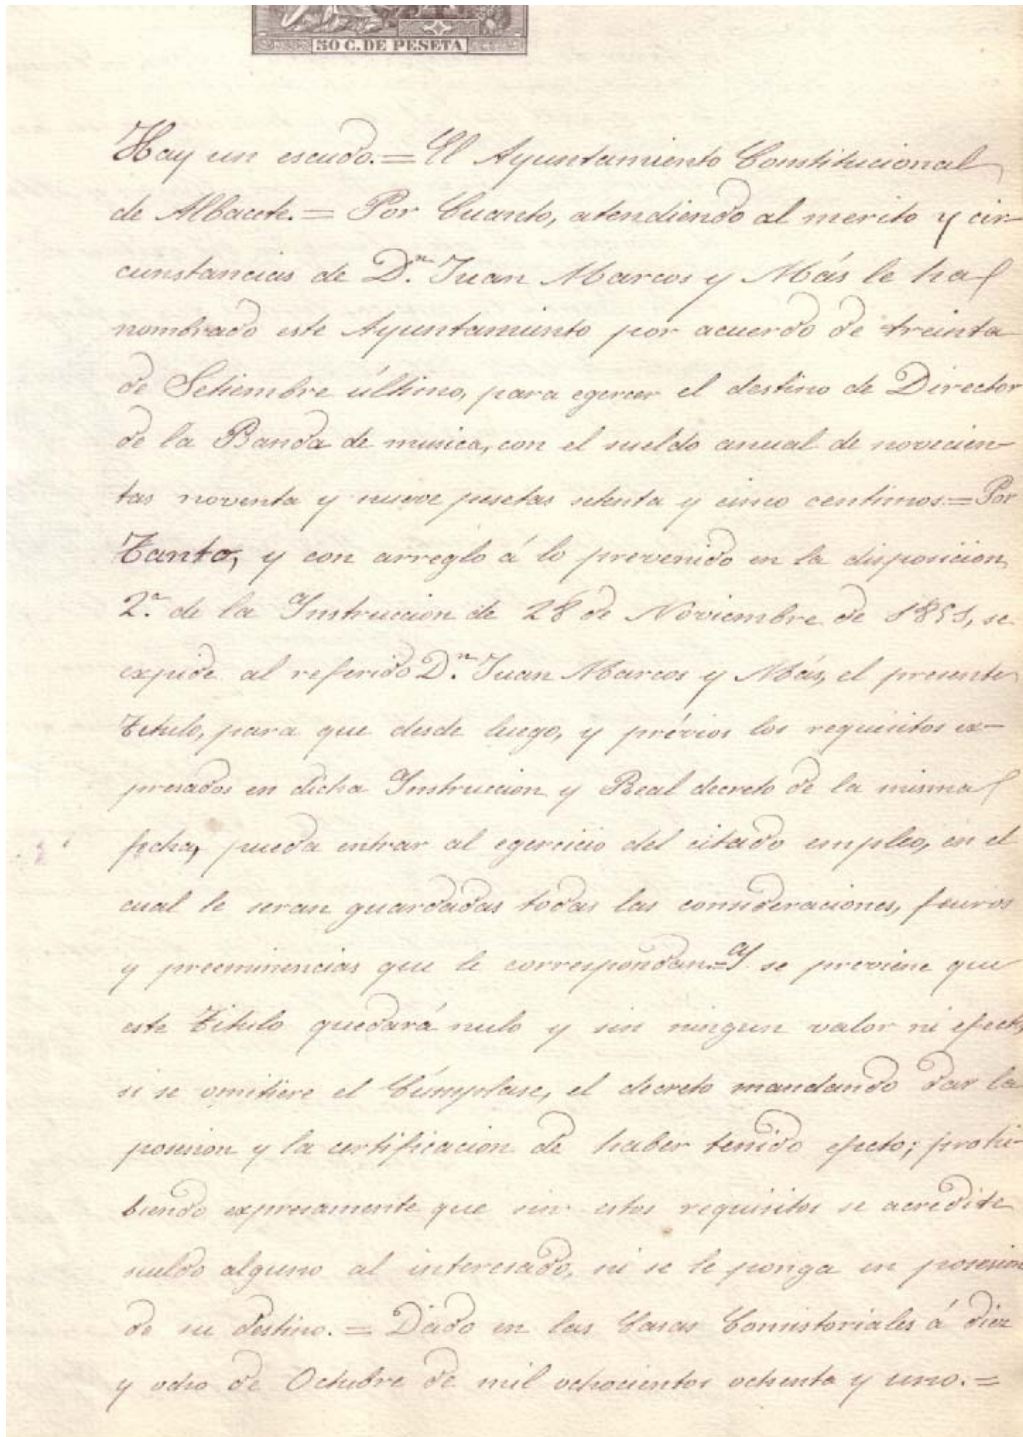 50 C. DE PESETA
Hay un escudo.= El Ayuntamiento Constitucional
de Albacete.= Por Cuanto, atendiendo al merito y cir-
cunstancias de D.n Juan Marcos y Más le ha
nombrado este Ayuntamiento por acuerdo de treinta
de Setiembre último, para egercer el destino de Director
de la Banda de musica, con el sueldo anual de novecien-
tas noventa y nueve pesetas setenta y cinco centimos.= Por
Tanto, y con arreglo á lo prevenido en la disposicion
2.a de la Instruccion de 28 de Noviembre de 1851, se
expide al referido D.n Juan Marcos y Más, el presente
Titulo, para que desde luego, y prévios los requisitos ex-
presados en dicha Instruccion y Real decreto de la misma
fecha, pueda entrar al egercicio del citado empleo, en el
cual le seran guardadas todas las consideraciones, fueros
y preeminencias que le correspondan.= Y se previene que
este Titulo quedará nulo y sin ningun valor ni efecto,
si se omitiere el Cúmplase, el decreto mandando dar la
posesion y la certificacion de haber tenido efecto; prohi-
biendo expresamente que sin estos requisitos se acredite
sueldo alguno al interesado, ni se le ponga en posesion
de su destino.= Dado en las Casas Consistoriales á diez
y ocho de Octubre de mil ochocientos ochenta y uno.=